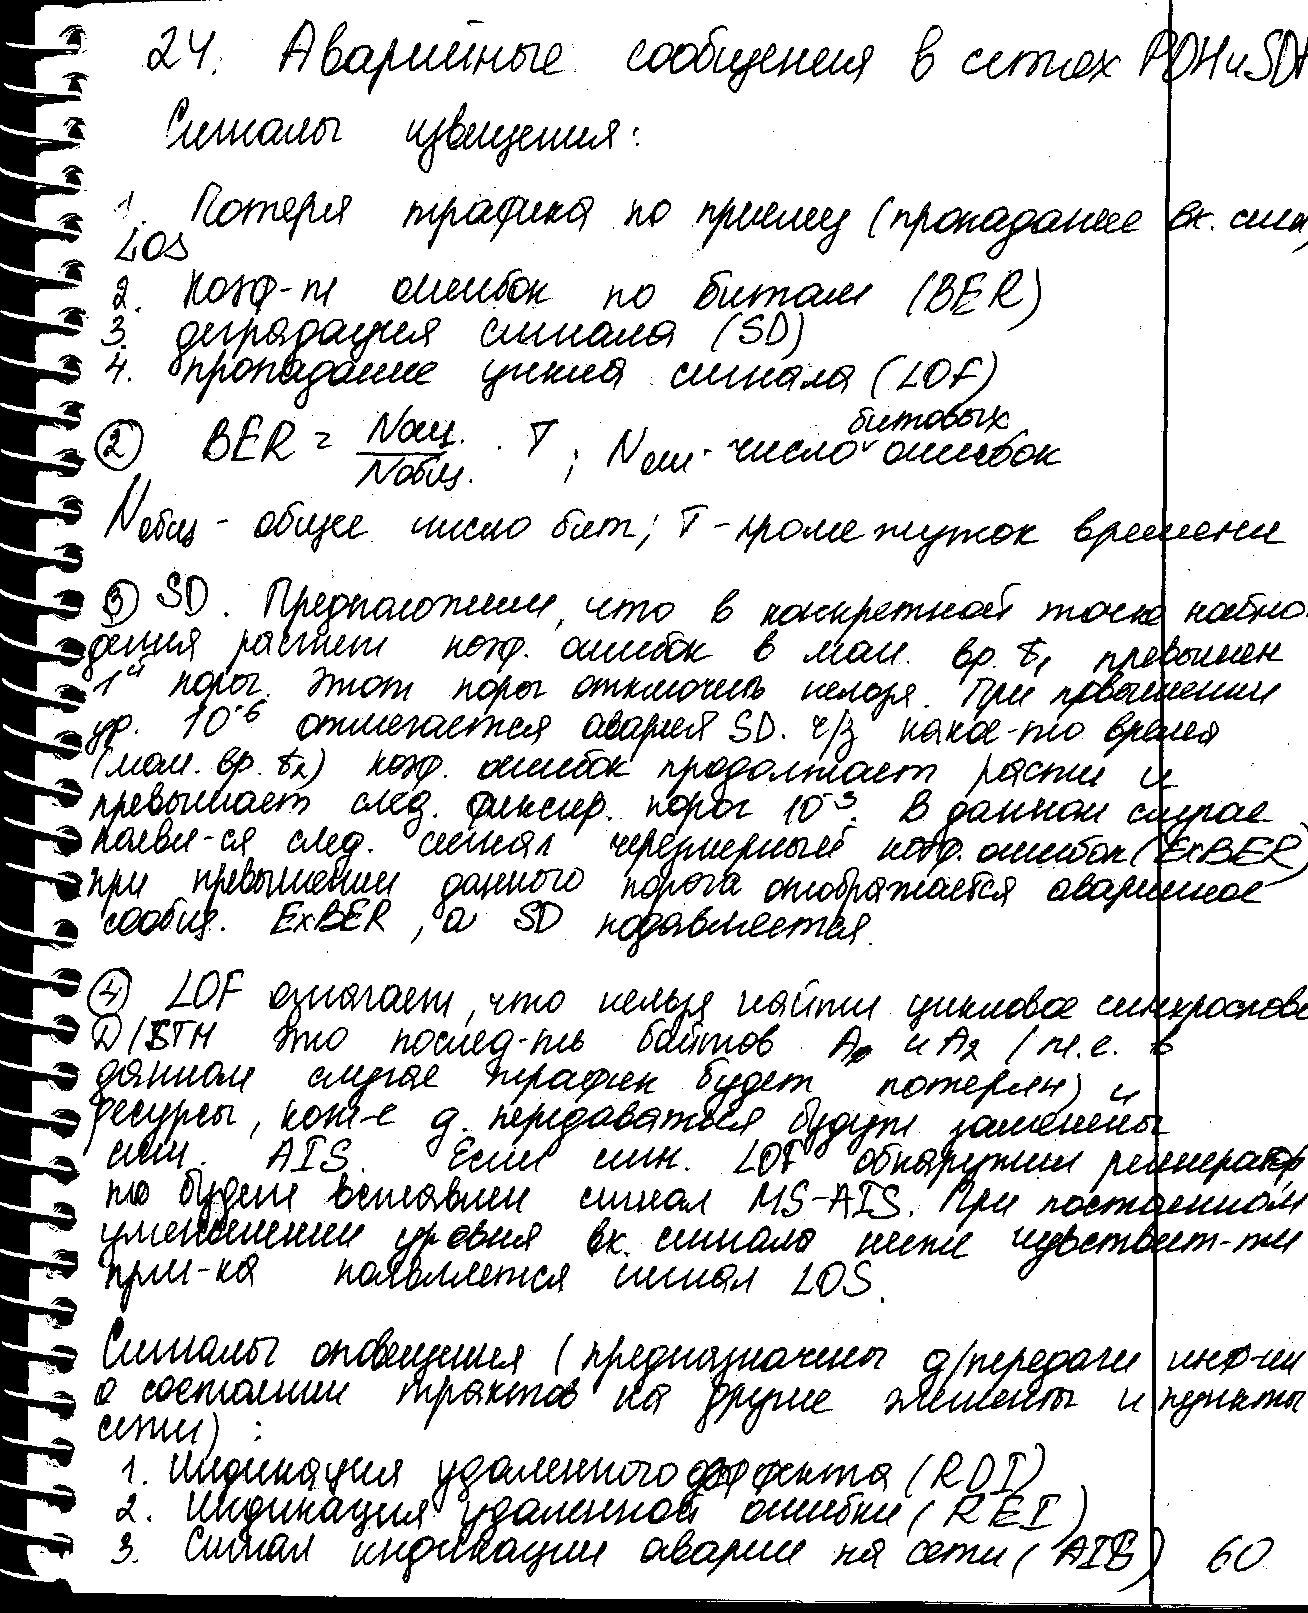 24. Аварийные сообщения в сетях PDH и SDH
Сигналы извещения:
1. Потеря трафика по приему (пропадание вх. сигн.)
LOS
2. Коэф-т ошибок по битам (BER)
3. деградация сигнала (SD)
4. пропадание цикла сигнала (LOF)
② BER = Nош. / Nобщ. · T ; Nош - число битовых ошибок
Nобщ - общее число бит; T - промежуток времени
③ SD. Предположим, что в конкретной точке наблю-
дения растет коэф. ошибок в мом. вр. t1 превышен
1й порог. Этот порог отключить нельзя. При превышении
ур. 10^-6 отмечается авария SD. ч/з какое-то время
(мом. вр. t2) коэф. ошибок продолжает расти и
превышает след. фиксир. порог 10^-3. В данном случае
появи-ся след. сигнал чрезмерный коэф. ошибок (ExBER)
при превышении данного порога отображается аварийное
сообщ. ExBER, а SD подавляется.
④ LOF означает, что нельзя найти цикловое синхрослово
D/STM это послед-ть байтов A1 и A2 (т.е. в
данном случае трафик будет потерян) и
ресурсы, кот-е д. передаваться будут заменены
сигн. AIS. Если сигн. LOF обнаружил регенератор
то будет вставлен сигнал MS-AIS. При постоянном
уменьшении уровня вх. сигнала ниже чувствит-ти
прим-ка появляется сигнал LOS.
Сигналы оповещения (предназначены д/передачи инф-ии
о состоянии трактов на другие элементы и пункты
сети) :
1. Индикация удаленного дефекта (RDI)
2. Индикация удаленной ошибки (REI)
3. Сигнал индикации аварии на сети (AIS)
60